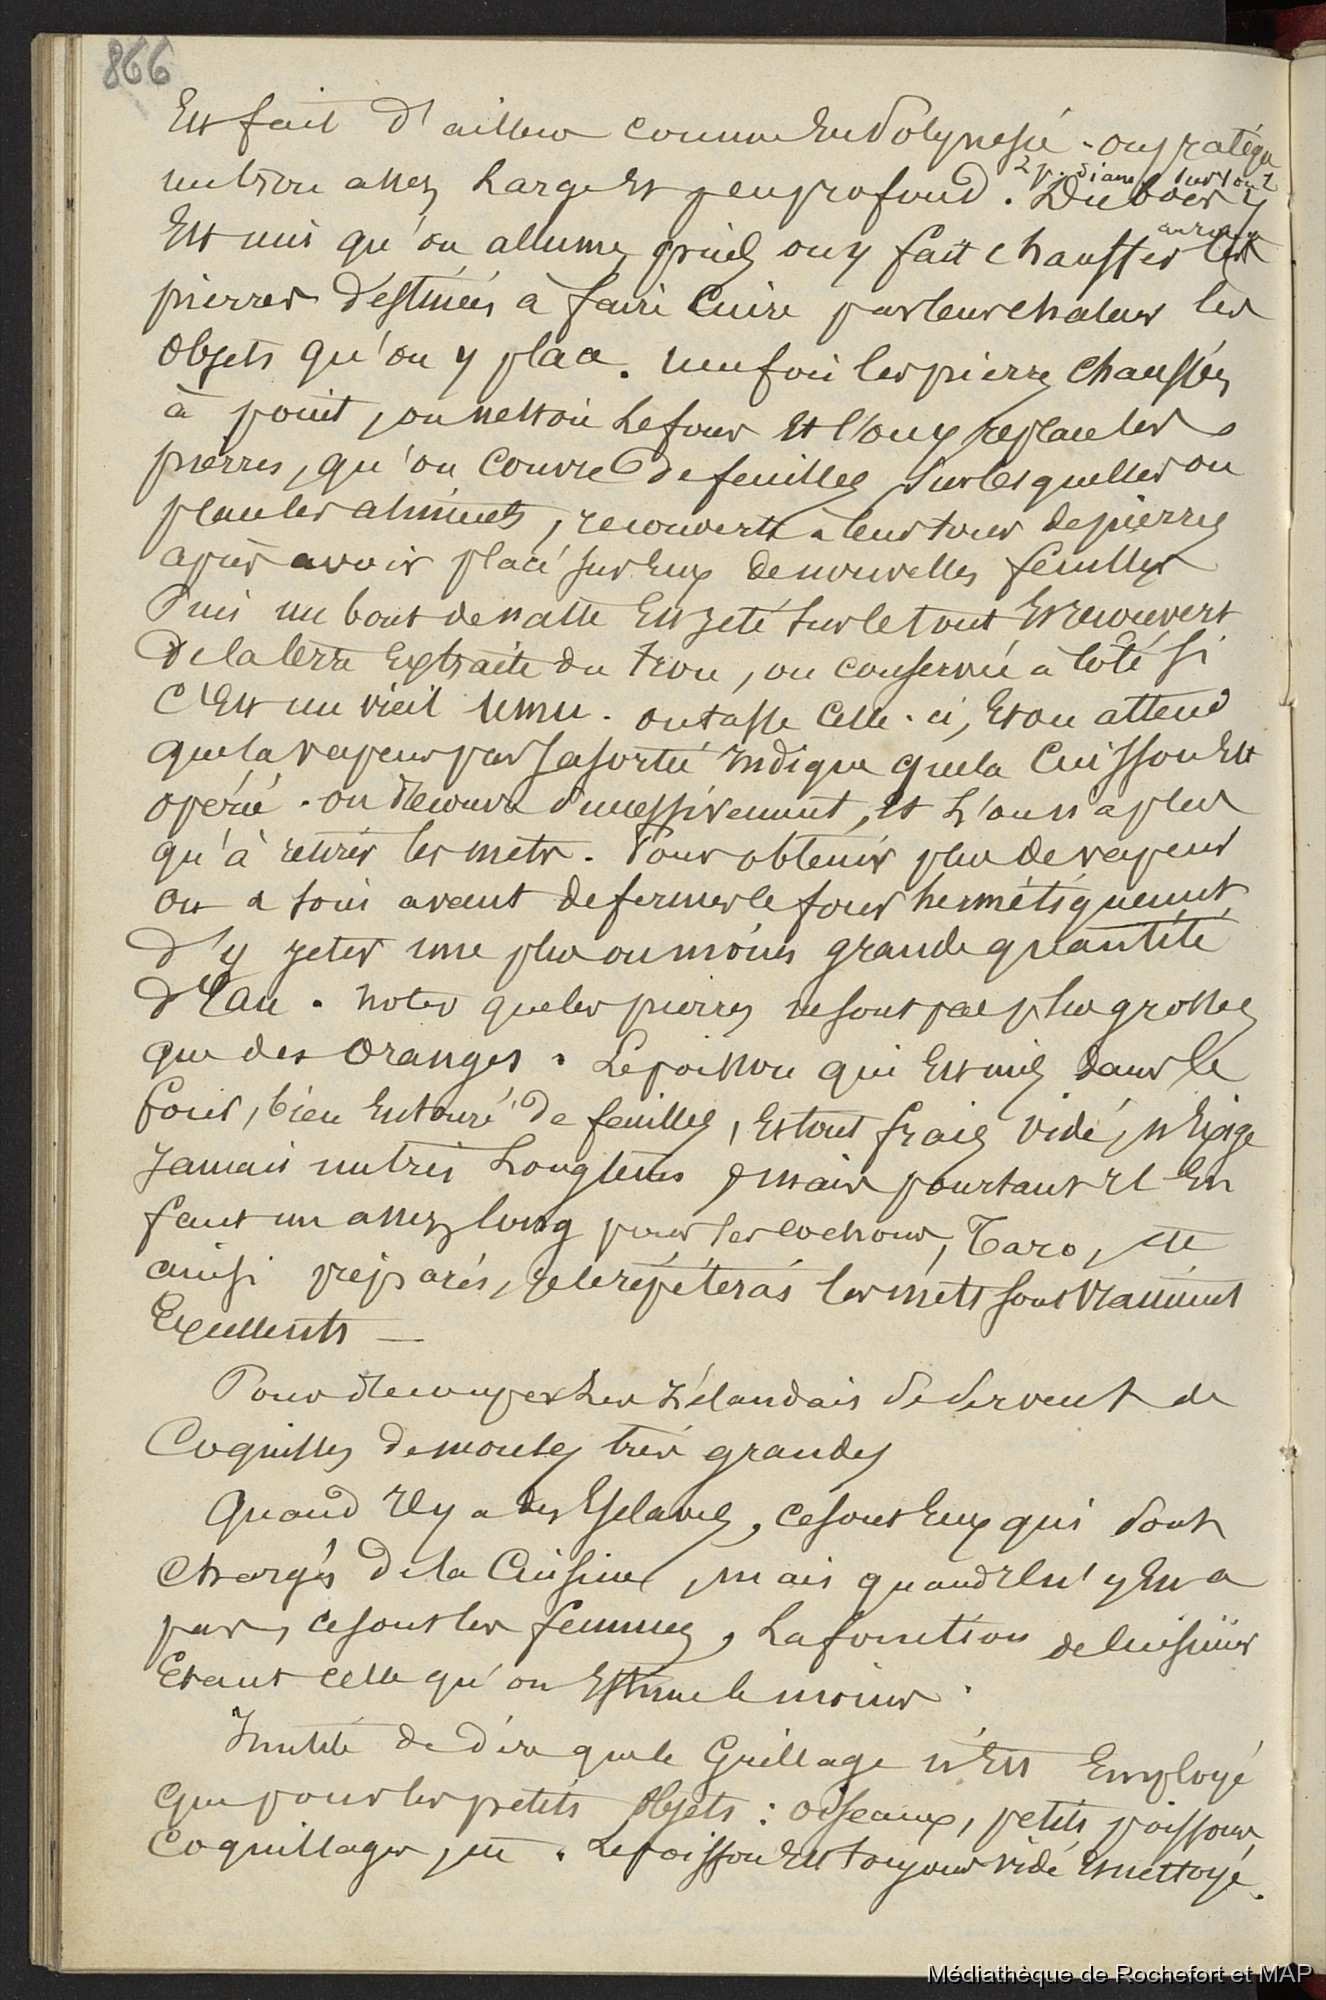 866
Est fait d'ailleurs comme en Polynésie. on pratique
un trou assez large et peu profond. Du bois y
2 p. diam. surtout
Est mis qu'on allume, puis on y fait chauffer les
pierres destinées à faire cuire par leur chaleur les
objets qu'on y place. une fois les pierres chauffées
à point, on nettoie le four et l'on y replace les
pierres, qu'on couvre de feuilles sur lesquelles on
place les aliments, recouverts à leur tour de pierres
après avoir placé sur eux de nouvelles feuilles
Puis un bout de natte est jeté sur le tout et recouvert
de la terre extraite du trou, ou conservée à côté si
c'est un vieil umu. on tasse celle-ci, et on attend
que la vapeur par sa sortie indique que la cuisson est
opérée. on découvre successivement, et l'on n'a plus
qu'à retirer les mets. Pour obtenir plus de vapeur
on a soin avant de fermer le four hermétiquement
d'y jeter une plus ou moins grande quantité
d'eau. Notez que les pierres ne sont pas plus grosses
que des oranges. Le poisson qui est mis dans le
four, bien entouré de feuilles, et tout frais vidé, n'exige
jamais un très long tems, mais pourtant il en
faut un assez long pour les cochons, Taro, etc
ainsi préparés, je le répéterai les mets sont vraiment
Excellents —
Pour découper les Zélandais se servent de
Coquilles de moules très grandes
Quand il y a des Esclaves, ce sont eux qui sont
chargés de la cuisine, mais quand il n'y en a
pas, ce sont les femmes, la fonction de cuisinier
étant celle qu'on estime le moins.
Inutile de dire que le Grillage n'est Employé
que pour les petits objets : oiseaux, petits poissons
coquillages, etc. Le poisson est toujours vidé et nettoyé.
Médiathèque de Rochefort et MAP